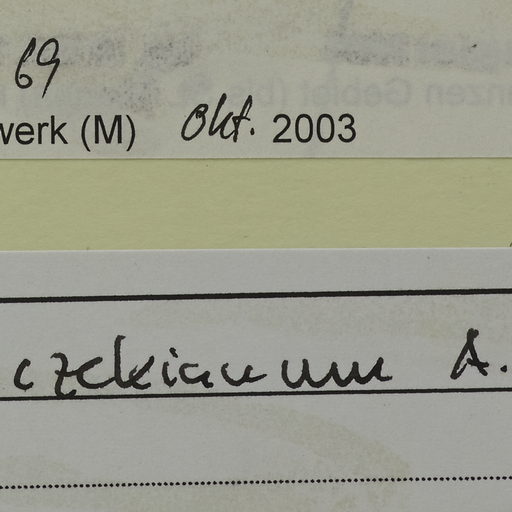 69
werk (M) Okt. 2003
czekianum A.